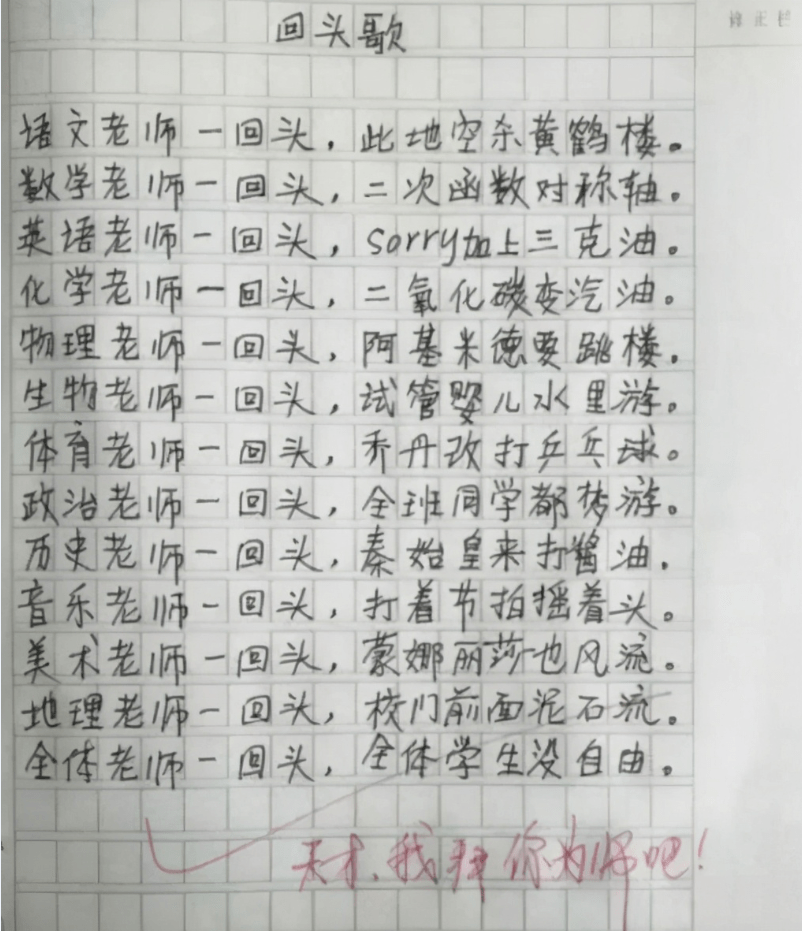 回头歌
修正栏
语文老师一回头，此地空余黄鹤楼。
数学老师一回头，二次函数对称轴。
英语老师一回头，sorry加上三克油。
化学老师一回头，二氧化碳变汽油。
物理老师一回头，阿基米德要跳楼。
生物老师一回头，试管婴儿水里游。
体育老师一回头，乔丹改打乒乓球。
政治老师一回头，全班同学都梦游。
历史老师一回头，秦始皇来打酱油．
音乐老师一回头，打着节拍摇着头。
美术老师一回头，蒙娜丽莎也风流。
地理老师一回头，校门前面泥石流。
全体老师一回头，全体学生没自由。
天才、我拜你为师吧！